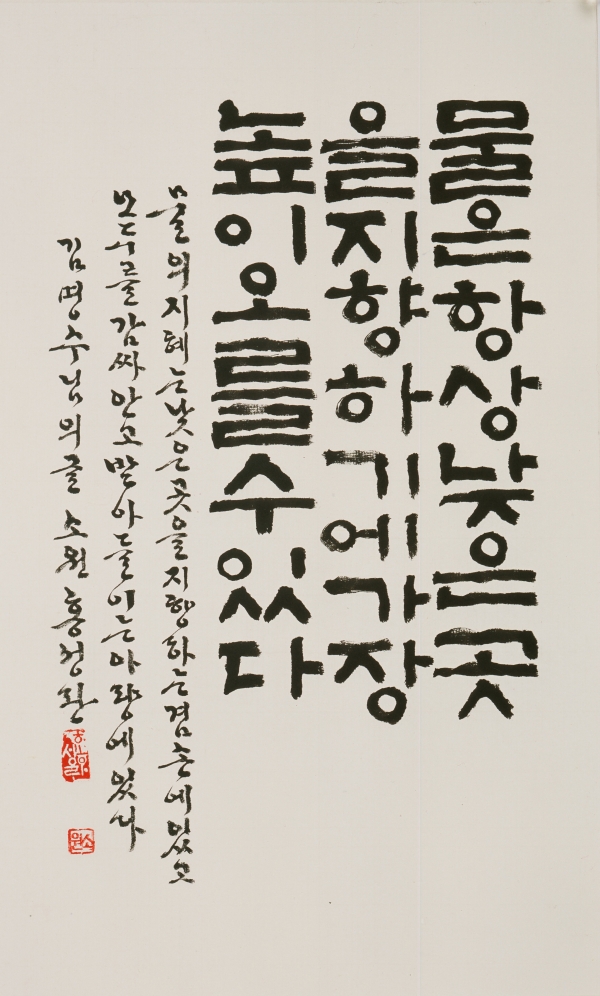 물은항상낮은곳
을지향하기에가장
높이오를수있다
물의지혜는낮은곳을지향하는겸손에있고
모두를감싸안고받아들이는아량에있다
김영수님의글 소원 홍성환